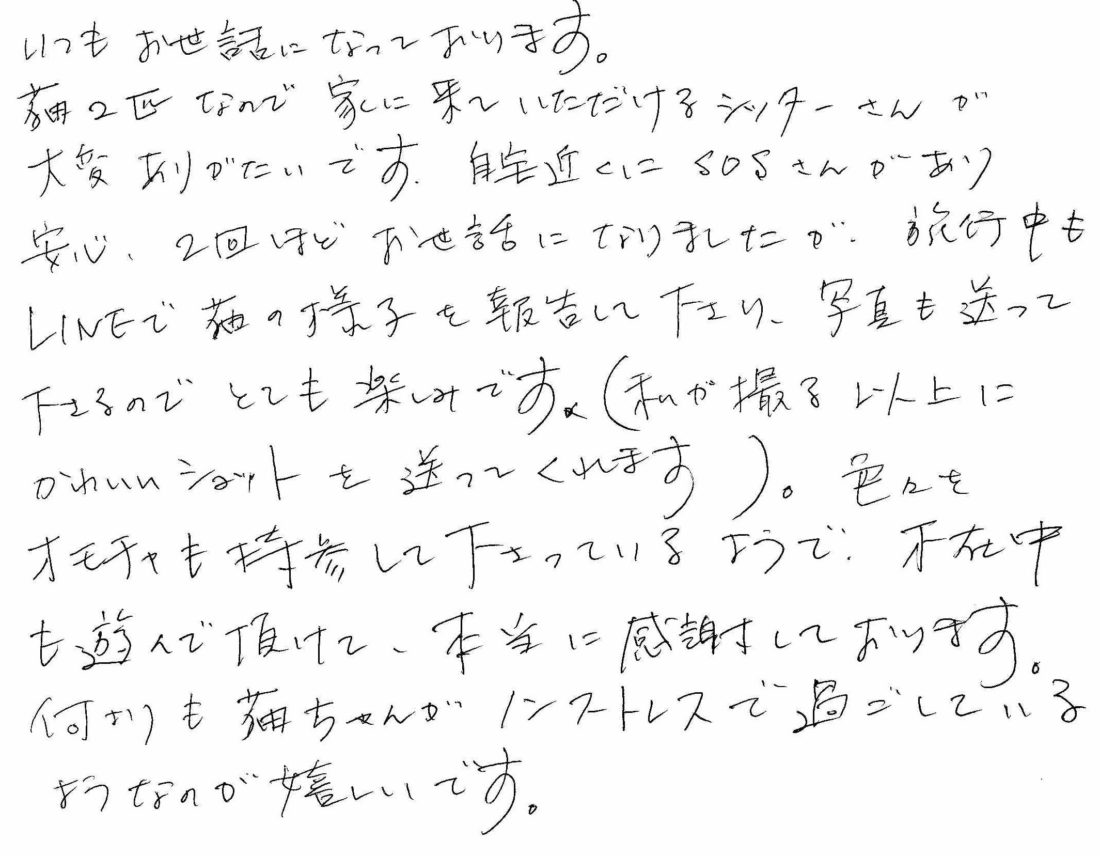 いつもお世話になっております。
猫2匹なので家に来ていただけるシッターさんが
大変ありがたいです。自宅近くにSOSさんがあり
安心、2回ほどお世話になりましたが、旅行中も
LINEで猫の様子を報告して下さり、写真も送って
下さるのでとても楽しみです。(私が撮る以上に
かわいいショットを送ってくれます)。色々な
オモチャも持参して下さっているようで、不在中
も遊んで頂けて、本当に感謝しております。
何よりも猫ちゃんがノンストレスで過ごしている
ようなのが嬉しいです。